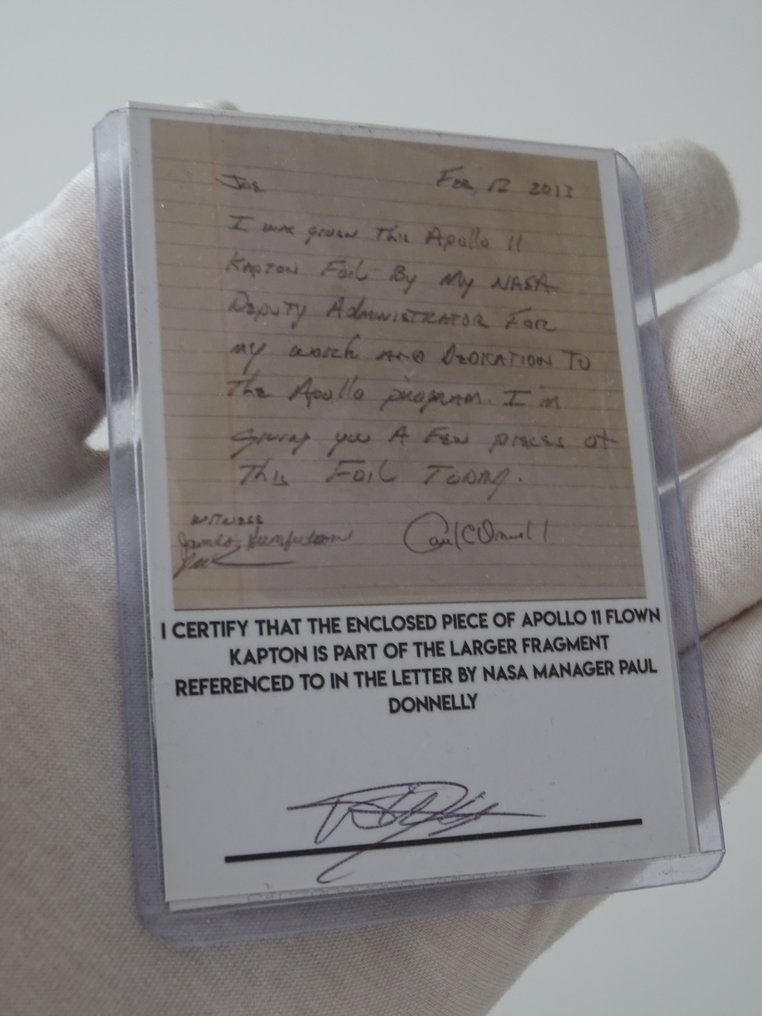 Joe Feb 12 2013
I was given This Apollo 11
Kapton Foil By My NASA
Deputy Administrator For
my work and Dedication To
The Apollo program. I'm
giving you A Few pieces of
This Foil Today.
Witness
Paul C Donnelly
I CERTIFY THAT THE ENCLOSED PIECE OF APOLLO 11 FLOWN
KAPTON IS PART OF THE LARGER FRAGMENT
REFERENCED TO IN THE LETTER BY NASA MANAGER PAUL
DONNELLY